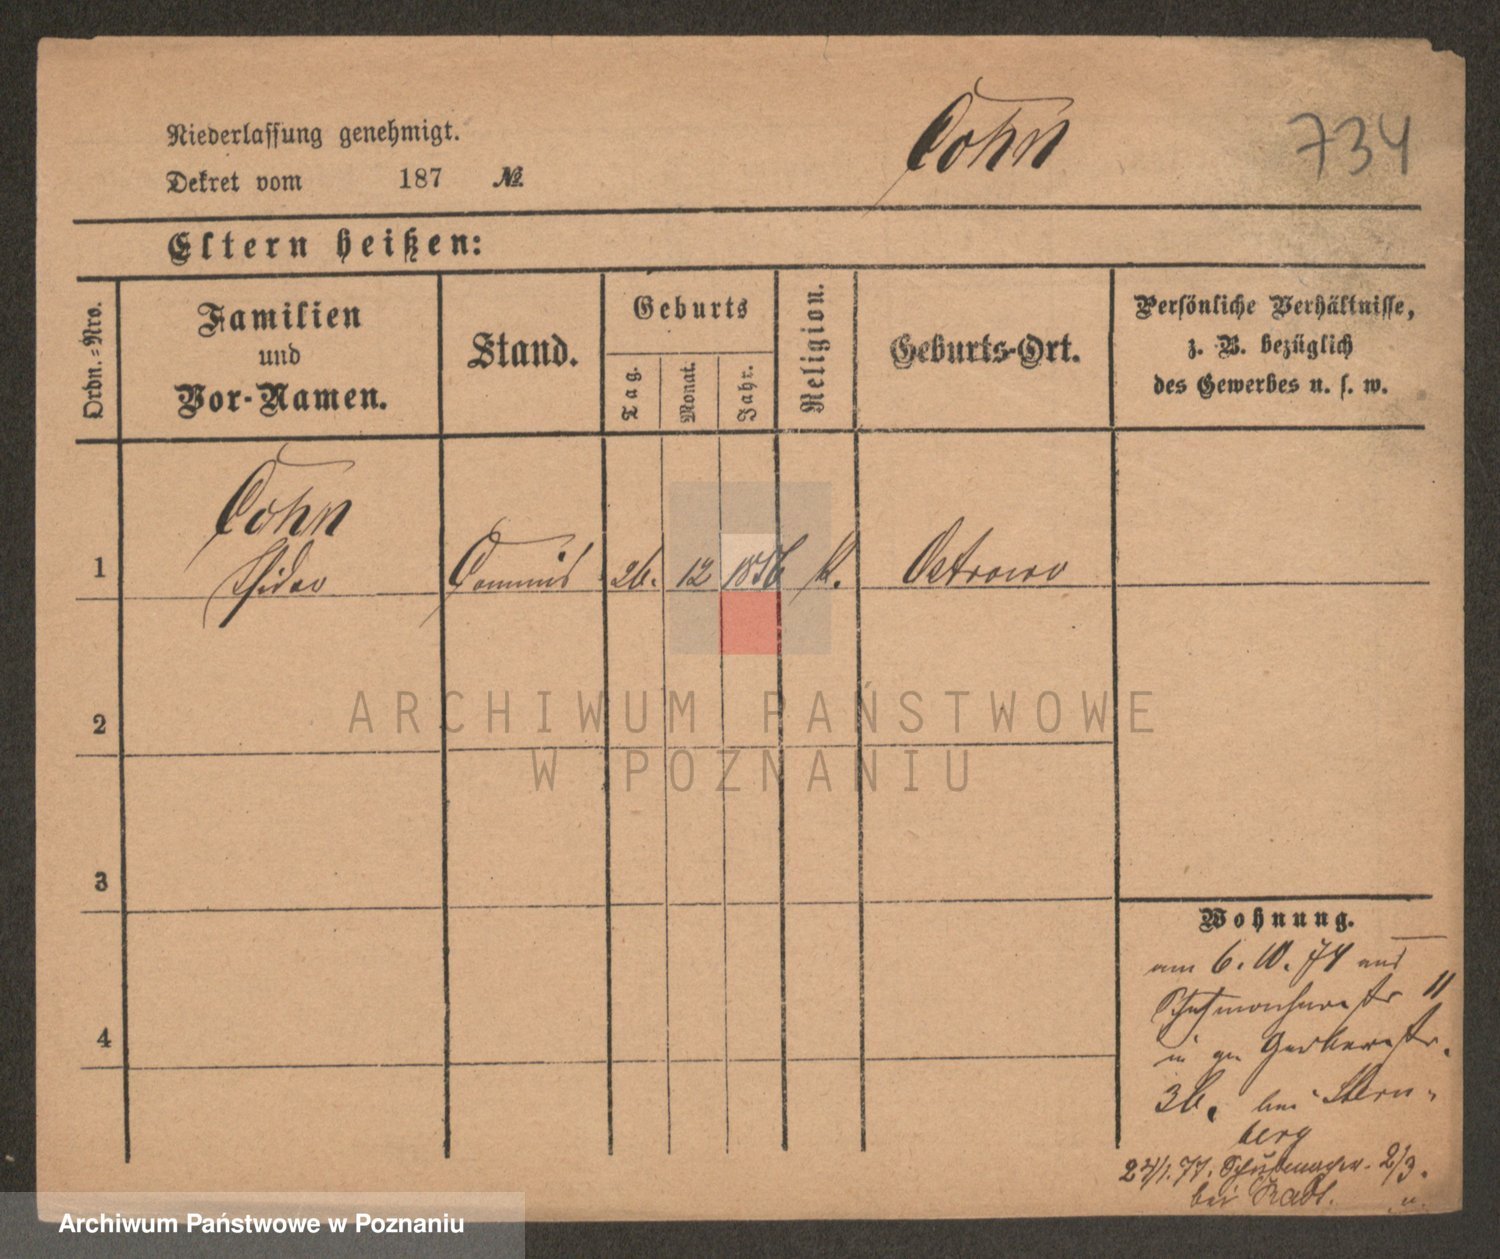 Cohn
734
Niederlassung genehmigt.
Dekret vom 187 №.
Eltern heißen:
Ordn.-Nro.
Familien
und
Vor-Namen.
Stand.
Geburts
Tag.
Monat.
Jahr.
Religion.
Geburts-Ort.
Persönliche Verhältnisse,
z. B. bezüglich
des Gewerbes u. s. w.
Cohn
1 Isidor Commis 26. 12 1856 Ostrowo
2
3
4
ARCHIWUM PAŃSTWOWE
W POZNANIU
Wohnung.
am 6. 10. 74 aus
11
Gerberstr.
36. bei Stern-
berg
bei
Archiwum Państwowe w Poznaniu